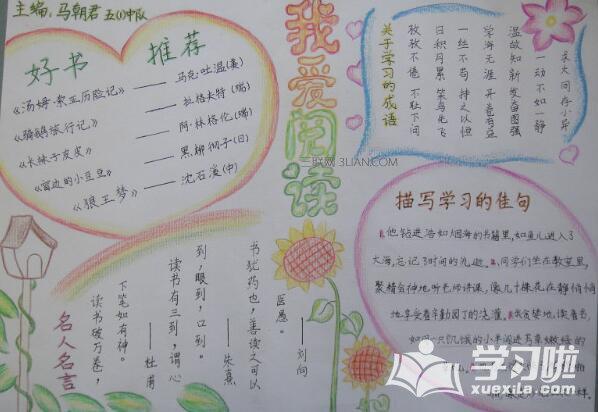 主编:马朝君 五(1)中队
我爱阅读
好书 推荐
《汤姆·索亚历险记》——马克·吐温(美)
《骑鹅旅行记》——拉格洛特(瑞)
《长袜子皮皮》——阿·林格伦(瑞)
《窗边的小豆豆》——黑柳彻子(日)
《狼王梦》——沈石溪(中)
关于学习的成语
孜孜不倦 不耻下问
日积月累 笨鸟先飞
一丝不苟 持之以恒
学海无涯 开卷有益
温故知新 发奋图强
一动不如一静
求大同存小异
描写学习的佳句
1.他钻进浩如烟海的书籍里,如鱼儿进入了
大海,忘记了时间的
2.同学们坐在教室里,
聚精会神地听老师讲课,像几十棵花在静悄悄
地享受着辛勤园丁的浇灌。
地读着书,
如同一只饥饿的小羊闯进芳草嫩绿的
样。
书犹药也,善读之可以
医愚。
——刘向
读书有三到,谓心
到,眼到,口到。
——朱熹
读书破万卷,
下笔如有神。
——杜甫
名人名言
三联网 3LIAN.COM
学习啦
xuexila.com